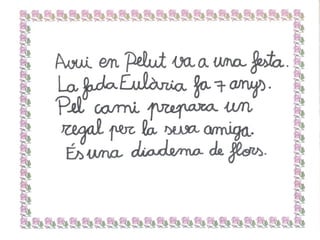 Avui en Pelut va a una festa.
La fada Eulària fa 7 anys.
Pel camí prepara un
regal per la seva amiga.
És una diadema de flors.